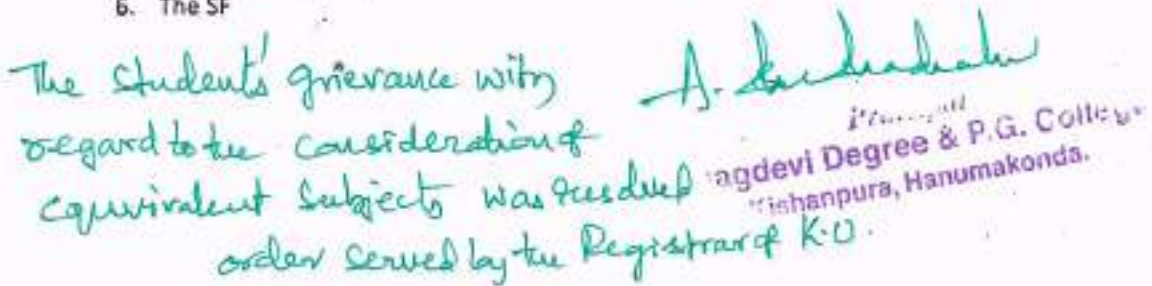 6. The SF
The Student's grievance with
regard to the consideration of
equivalent Subjects was resolved
order served by the Registrar of K.U.
A.
agdevi Degree & P.G. Colle
ishanpura, Hanumakonda.